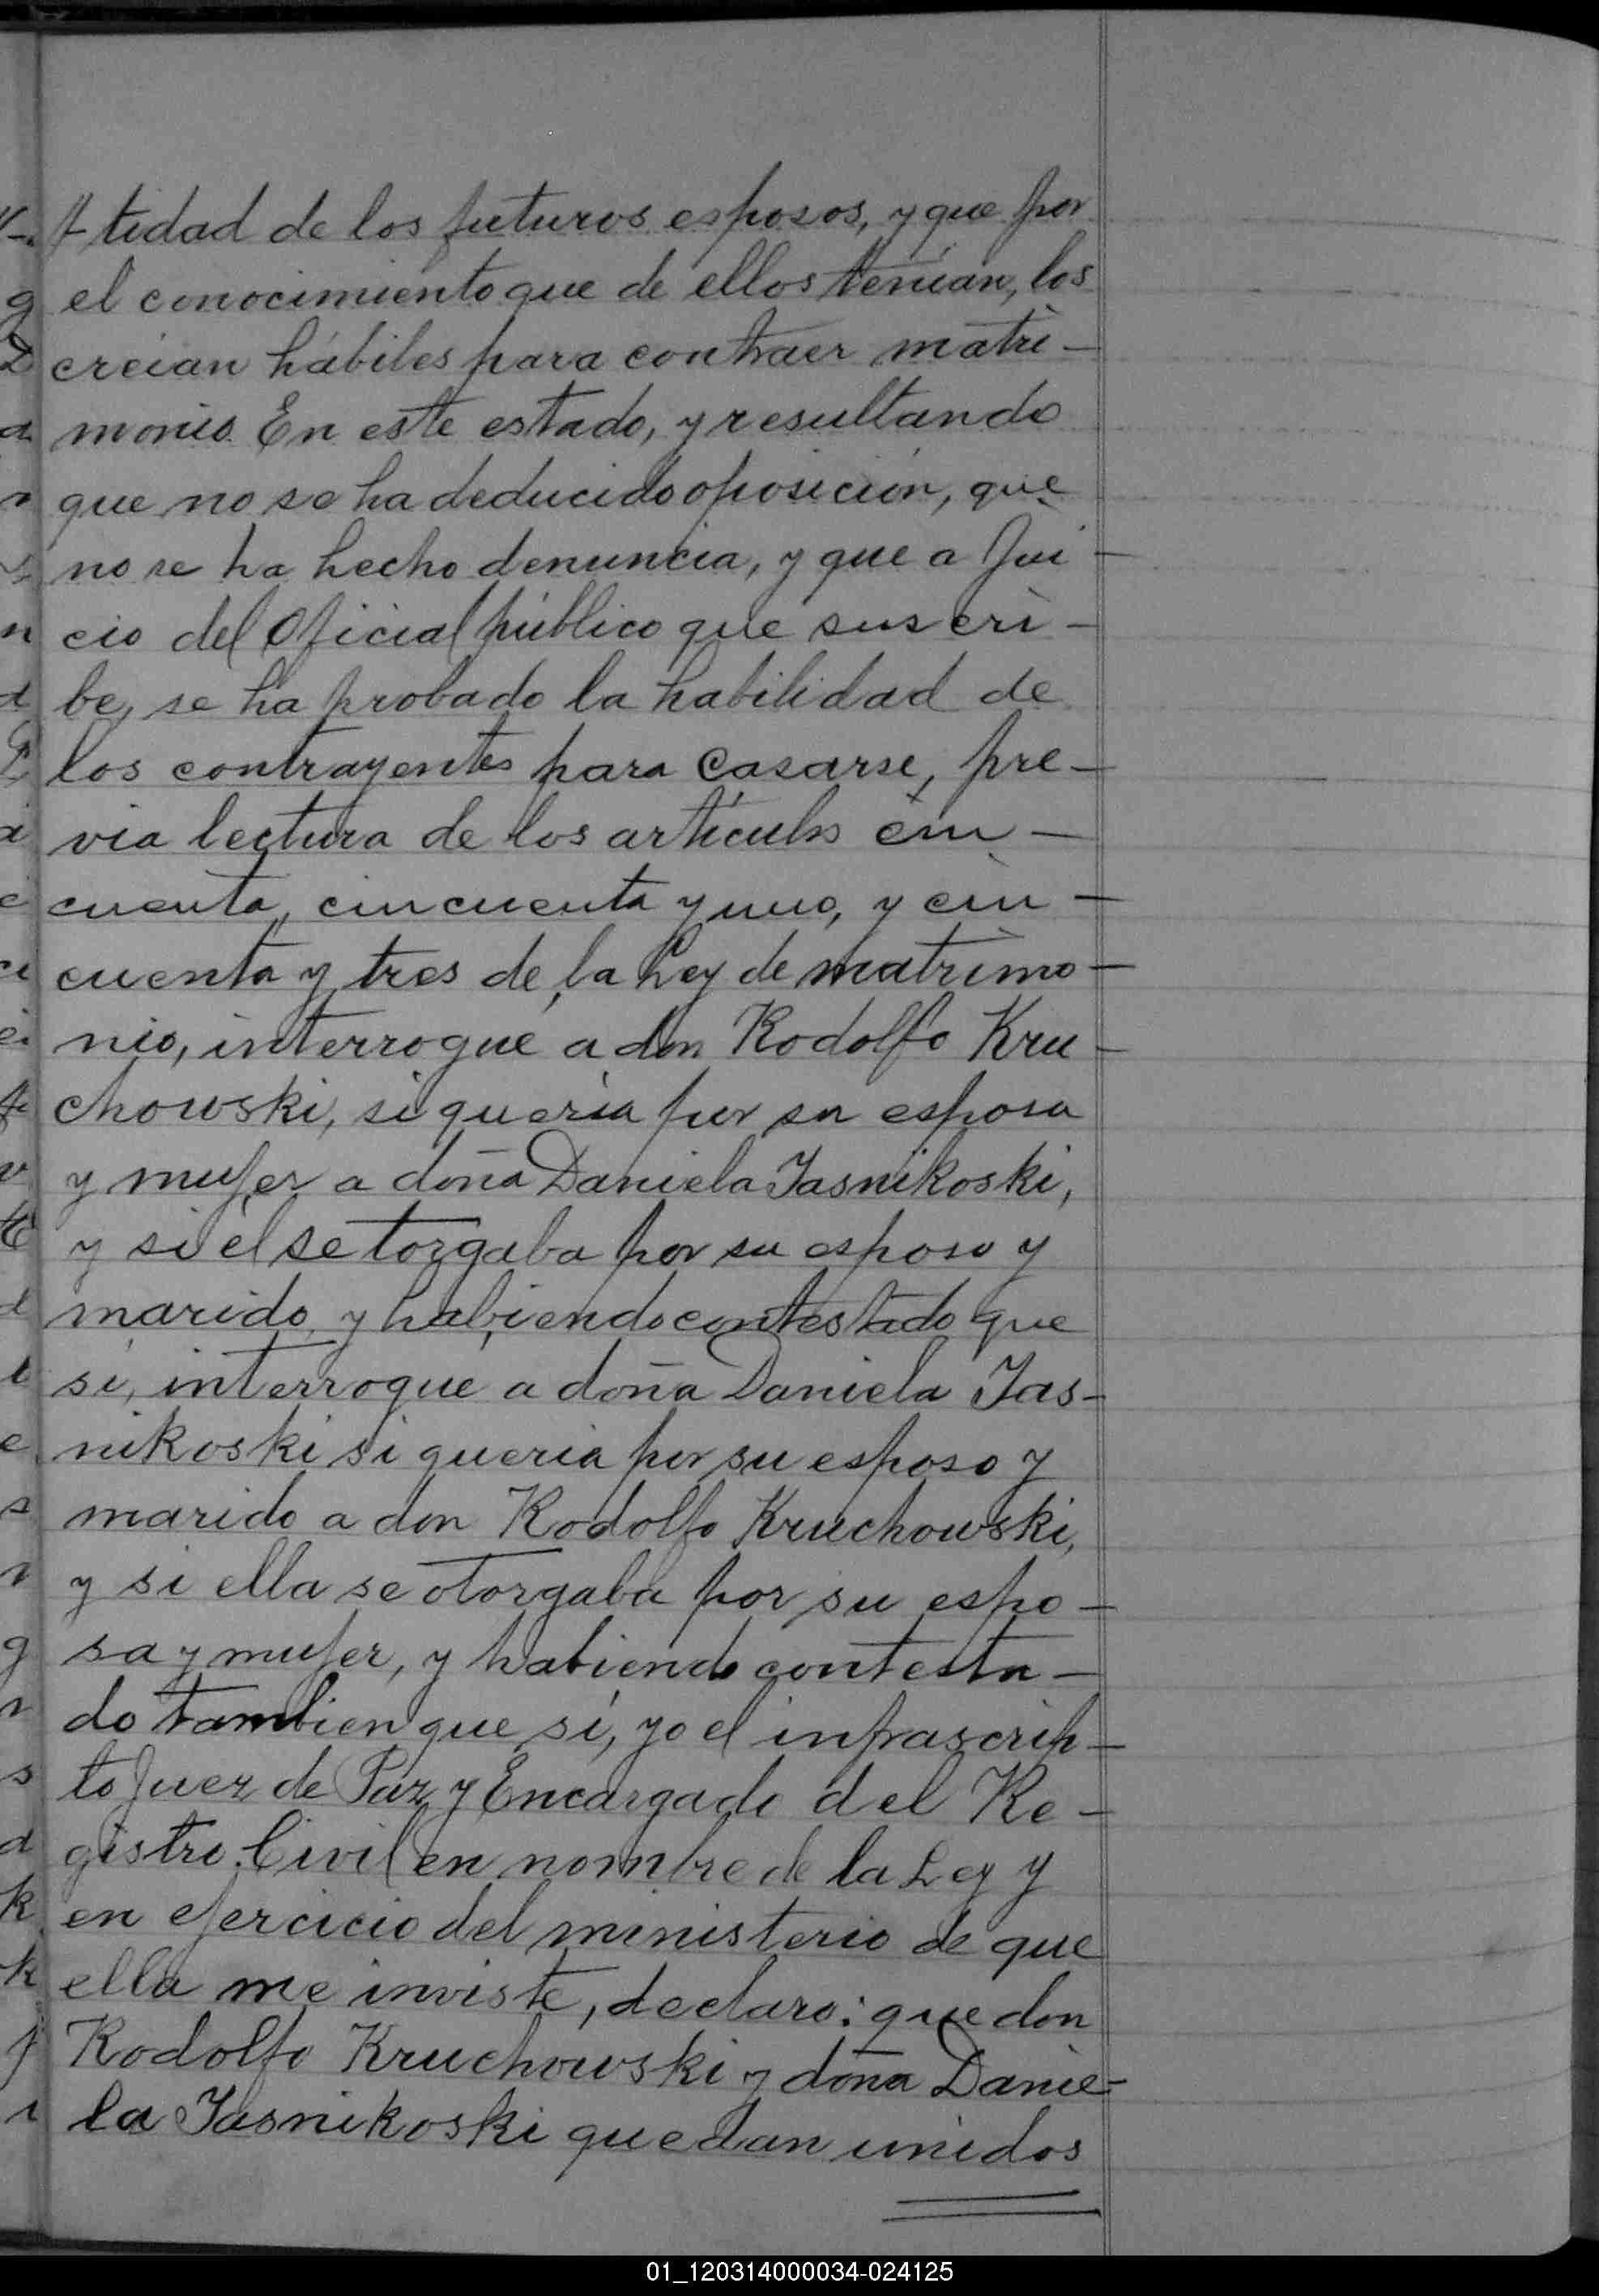 tidad de los futuros esposos, y que por
el conocimiento que de ellos tenían, los
creian hábiles para contraer matri-
monio. En este estado, y resultando
que no se ha deducido oposición, que
no se ha hecho denuncia, y que a jui-
cio del Oficial público que suscri-
be, se ha probado la habilidad de
los contrayentes para casarse, pre-
via lectura de los artículos cin-
cuenta, cincuenta y uno, y cin-
cuenta y tres de la Ley de matrimo-
nio, interrogué a don Rodolfo Kru-
chowski, si quería por su esposa
y mujer a doña Daniela Jasnikoski,
y si él se torgaba por su esposo y
marido, y habiendo contestado que
sí, interrogue a doña Daniela Jas-
nikoski si queria por su esposo y
marido a don Rodolfo Kruchowski,
y si ella se otorgaba por su espo-
sa y mujer, y habiendo contesta-
do tambien que sí, yo el infrascrip-
to Juez de Paz y Encargado del Re-
gistro Civil en nombre de la Ley y
en ejercicio del ministerio de que
ella me inviste, declaro: que don
Rodolfo Kruchowski y doña Danie-
la Jasnikoski quedan unidos
01_120314000034-024125